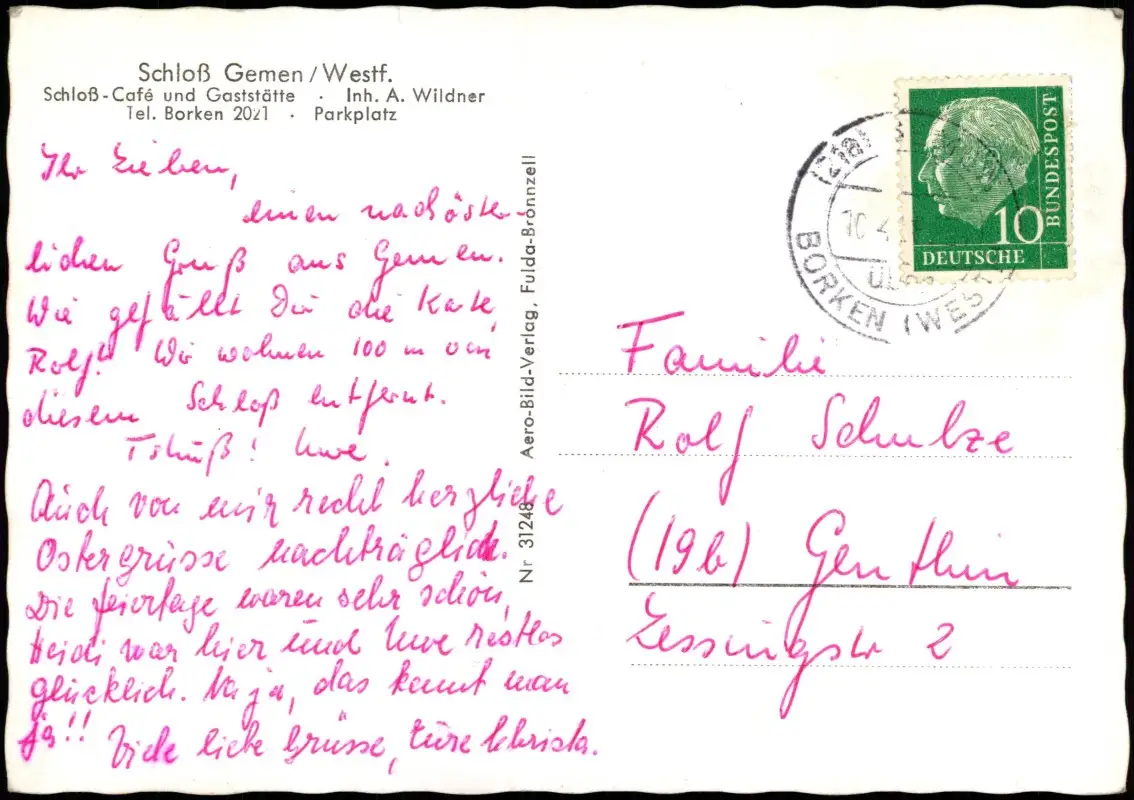 Schloß Gemen/Westf.
Schloß-Café und Gaststätte · Inh. A. Wildner
Tel. Borken 2021 · Parkplatz
Ihr Lieben,
einen nachöster-
lichen Gruß aus Gemen.
Wie gefällt Dir die Karte,
Rolf? Wir wohnen 100 m von
diesem Schloß entfernt.
Tshüß! Uwe.
Auch von mir recht herzliche
Ostergrüsse nachträglich.
Die Feiertage waren sehr schön,
Heidi war hier und Uwe restlos
glücklich. Na ja, das kennt man
ja!!
Viele liebe Grüsse, Eure Christa.
Nr 31248 Aero-Bild-Verlag, Fulda-Bronnzell
BORKEN (WES
10.4.
ÜB
10
DEUTSCHE
BUNDESPOST
Familie
Rolf Schulze
(19b) Genthin
Lessingstr 2